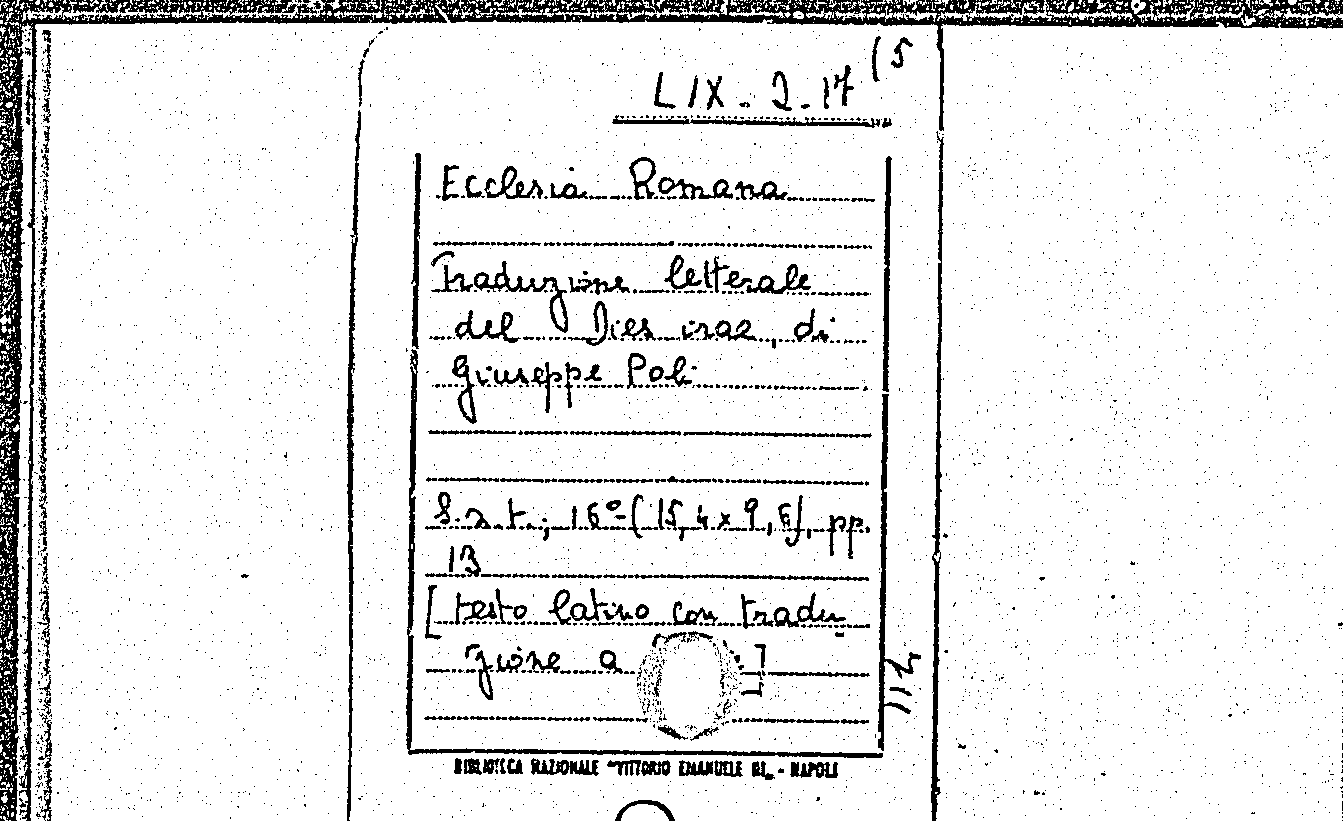 LIX. 2. 17 (5
Ecclesia Romana
Traduzione letterale
del Dies irae, di
Giuseppe Poli
S.n.t.; 16° (15,4 x 9,6), pp.
13
[testo latino con tradu-
zione a ]
BIBLIOTECA NAZIONALE "VITTORIO EMANUELE III" - NAPOLI